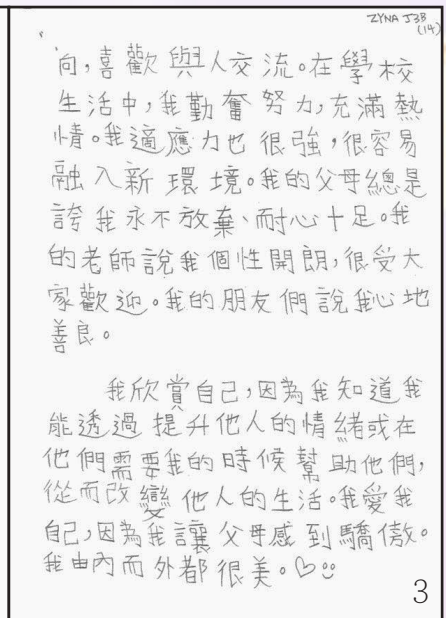 ZYNA J3B
(14)
向,喜歡與人交流。在學校
生活中,我勤奮努力,充滿熱
情。我適應力也很強,很容易
融入新環境。我的父母總是
誇我永不放棄、耐心十足。我
的老師說我個性開朗,很受大
家歡迎。我的朋友們說我心地
善良。
我欣賞自己,因為我知道我
能透過提升他人的情緒或在
他們需要我的時候幫助他們,
從而改變他人的生活。我愛我
自己,因為我讓父母感到驕傲。
我由內而外都很美。♡☺
3